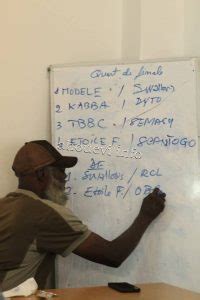 Quart de finale
1 MODELE. / Swallows
2 KABBA / DYTO
3 TBBC. / SEMACY
4 ETOILE F. /
DF
1. Swallows / RCL
2. Etoile F. /